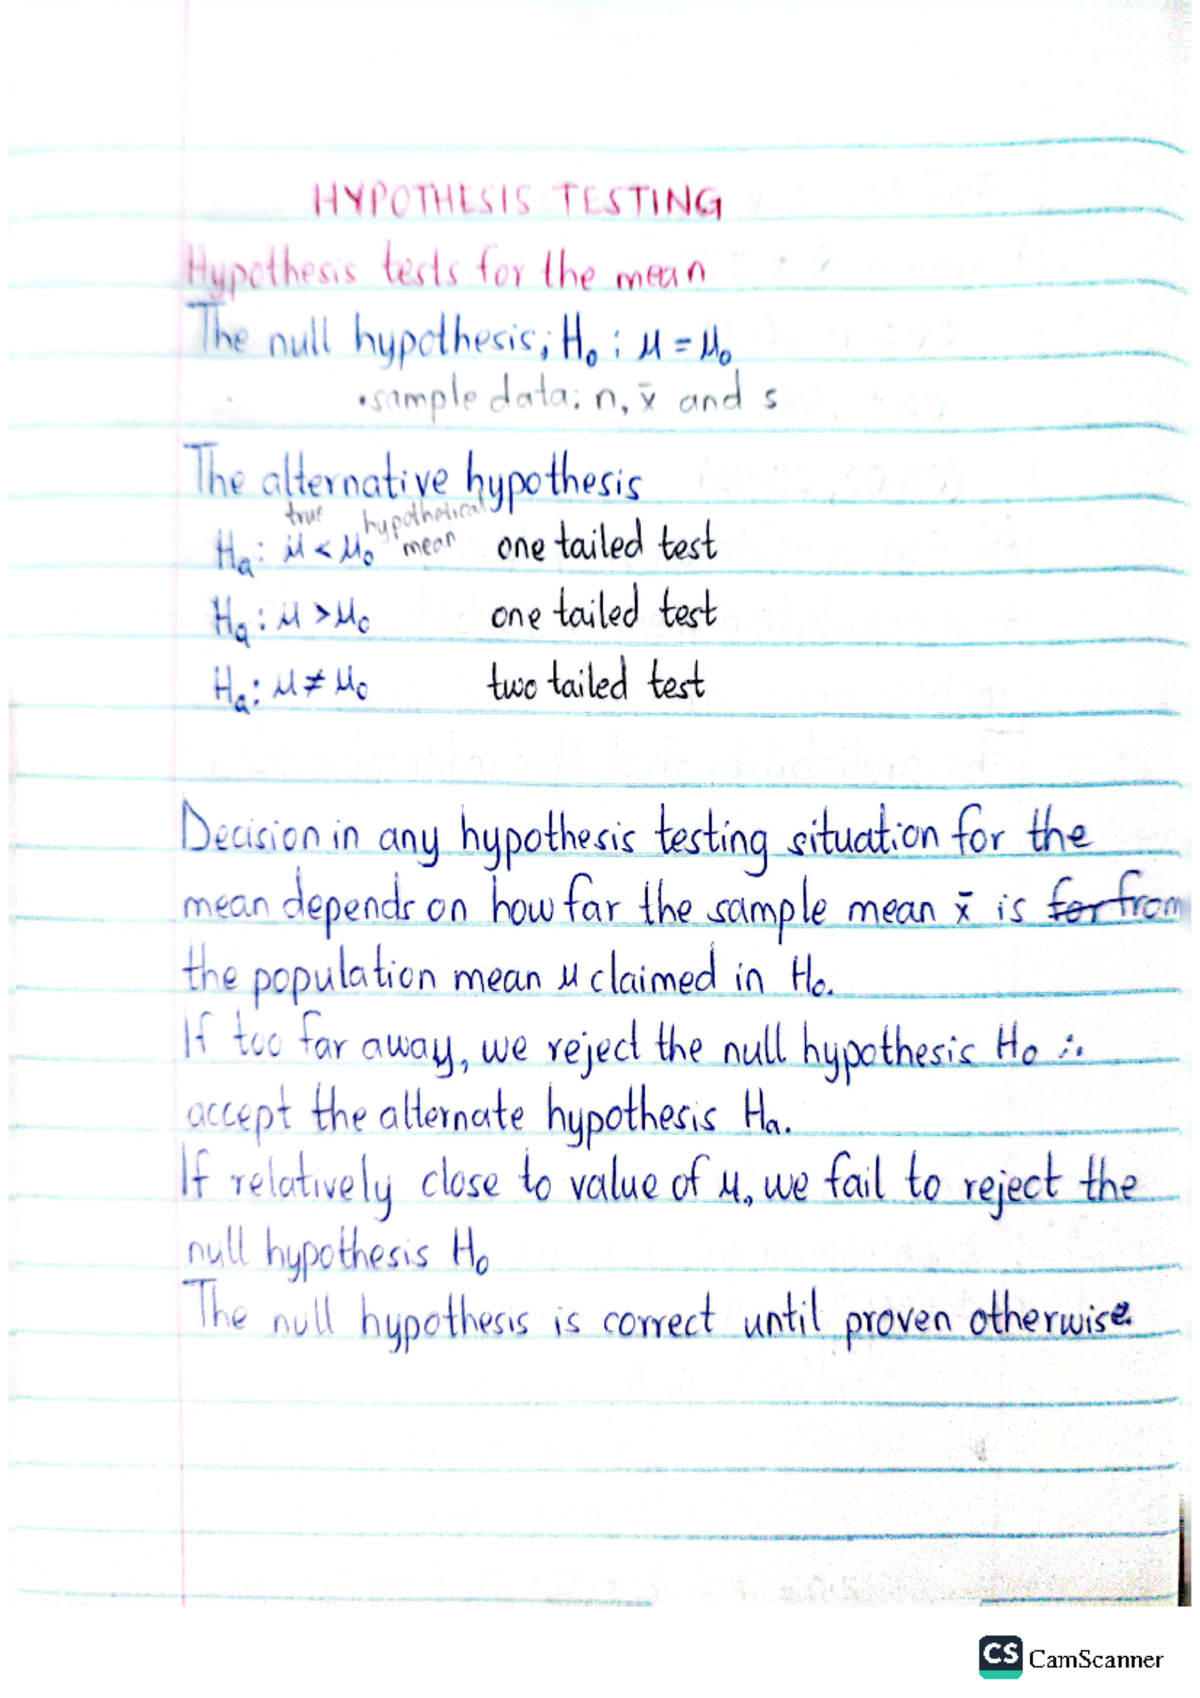 HYPOTHESIS TESTING
Hypothesis tests for the mean
The null hypothesis; H₀ : μ = μ₀
•sample data: n, x̄ and s
The alternative hypothesis
true hypothetical
Hₐ: μ < μ₀ mean one tailed test
Hₐ: μ > μ₀ one tailed test
Hₐ: μ ≠ μ₀ two tailed test
Decision in any hypothesis testing situation for the
mean depends on how far the sample mean x̄ is ~~for~~ from
the population mean μ claimed in H₀.
If too far away, we reject the null hypothesis H₀ ∴
accept the alternate hypothesis Hₐ.
If relatively close to value of μ, we fail to reject the
null hypothesis H₀
The null hypothesis is correct until proven otherwise.
CS CamScanner